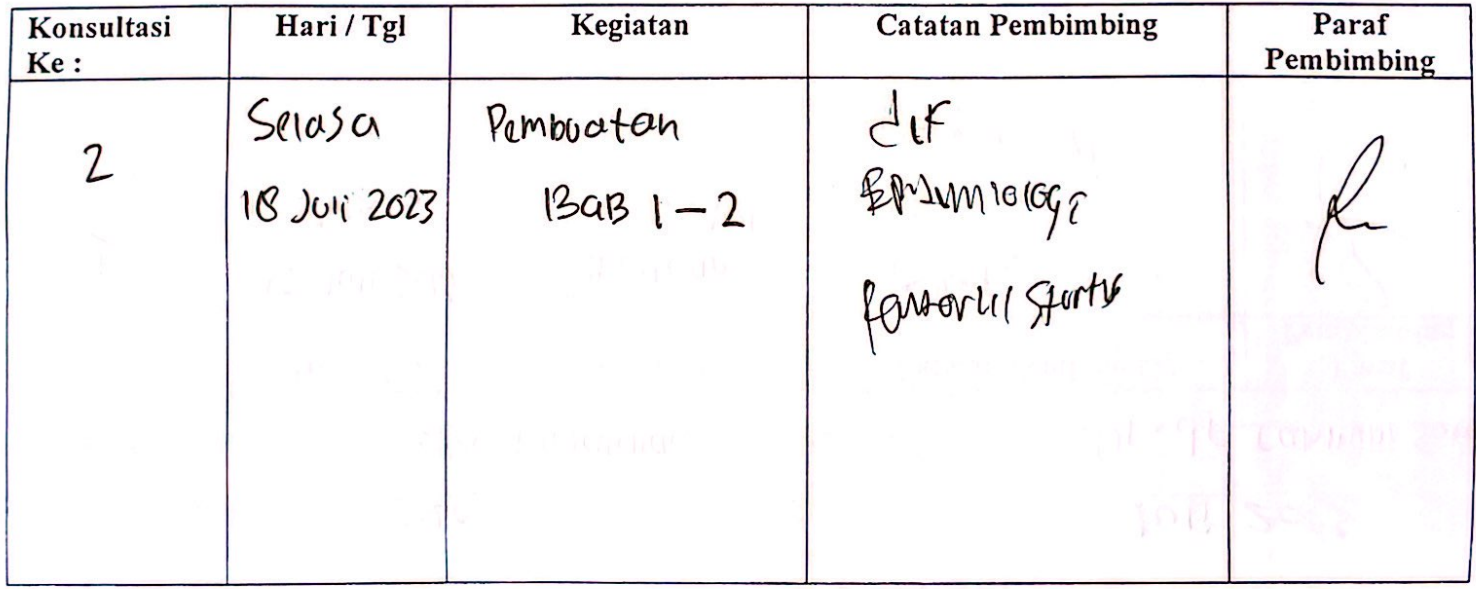 Konsultasi Ke :
Hari / Tgl
Kegiatan
Catatan Pembimbing
Paraf Pembimbing
2
Selasa
18 Juli 2023
Pembuatan
BaB 1 - 2